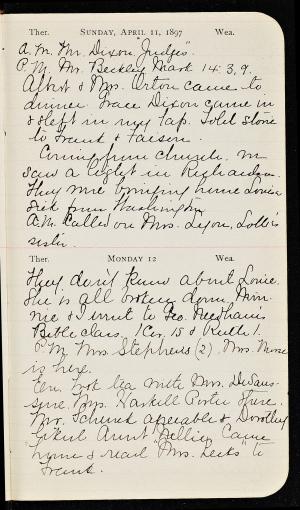 Ther. SUNDAY, APRIL 11, 1897 Wea.
A.M. Mr. Dixon "Judges".
P.M. Mr. Beckley Mark 14:3,9.
Albert & Mrs. Orton came to
dinner. Grace Dixon came in
& slept in my lap. Told stories
to Frank & Faison.
Coming from church, we
saw a light in Richardson.
They were bringing home Louise
sick from Washington
A.M. Called on Mrs. Lyon, Lottie's
sister.
Ther. MONDAY 12 Wea.
They don't know about Louise.
She is all broken down. Min-
nie & I went to Geo. Needham's
Bible class. 1 Cor. 15 & Ruth 1.
P.M. Mrs. Stephens (2). Mrs. Morse
is here.
Eve. Took tea with Mrs. DeSaus-
sure. Mrs. Haskell Porter there.
Mr. Schenck agreeable & Dorothy
Aunt Nellie. Came
home & read "Mrs. Leeks" to
Frank.